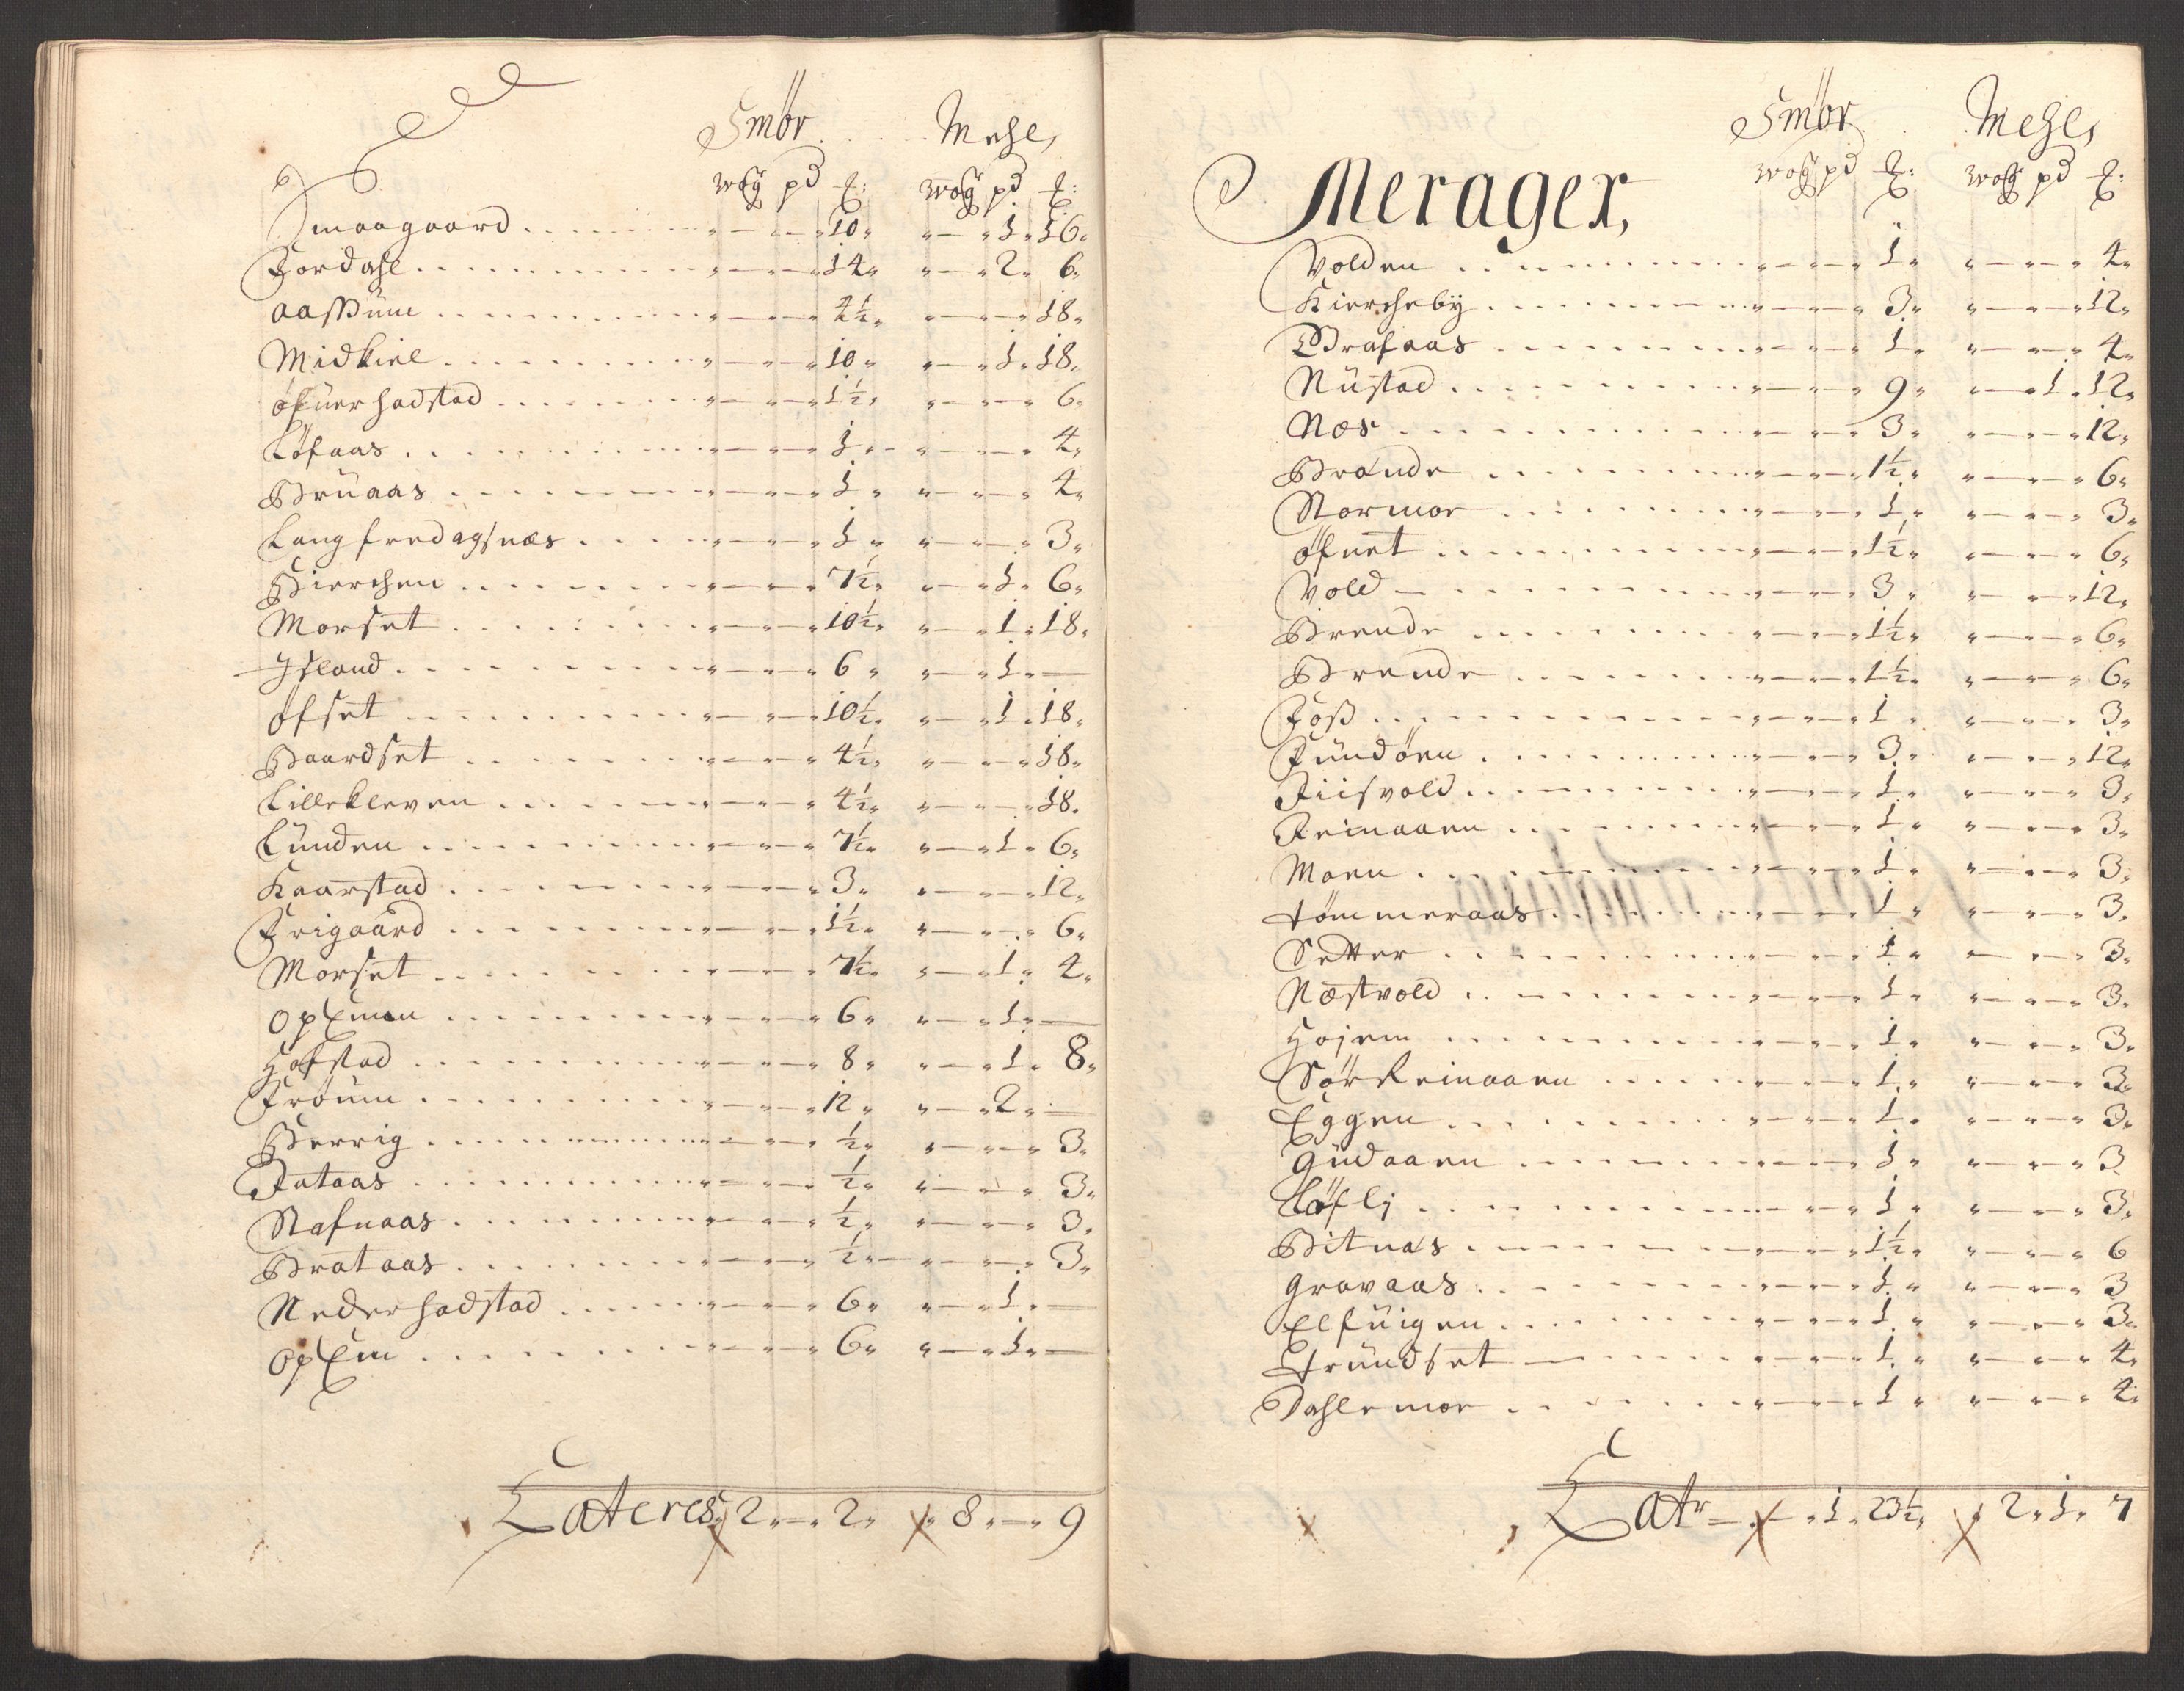 Smör Mehl,
wog pd ℔: wog pd ℔:
Smaagaard 10 1 16
Fordahl 14 2 6
aassum 4½ 18
Midkiel 10 1 18
öfuerhadstad 1½ 6
Löfaas 1 4
Bruaas 1 4
Langfredagsnæs 1 3
Bierchen 7½ 1 6
Morset 10½ 1 18
Jsland 6 1 —
öfset 10½ 1 18
Baardset 4½ 18
Lillekleven 4½ 18
Lunden 7½ 1 6
Kaarstad 3 12
Frigaard 1½ 6
Morset 7½ 1 4
Opemm 6 1 —
Hofstad 8 1 8
Fröum 12 2 —
Berrig ½ 3
Rataas ½ 3
Stafnaas ½ 3
Brataas ½ 3
Nederhadstad 6 1 —
Opem 6 1 —
Lateres 2 — 2 8 — 9
Smör Mehl,
wog pd ℔: wog pd ℔:
Merager,
Volden 1 4
Kiercheby 3 12
Brafaas 1 4
Nustad 9 1 12
Næs 3 12
Brænde 1½ 6
Stormoe 1 3
öfuet 1½ 6
Vold 3 12
Brende 1½ 6
Brende 1½ 6
Foss 1 3
Fundöen 3 12
Riisvold 1 3
Reinaaen 1 3
Moen 1 3
tömmeraas 1 3
Setter 1 3
Næstvold 1 3
Hojem 1 3
Sör Reinaaen 1 3
Eggen 1 3
Gudaaen 1 3
Löfli 1 3
Bitnæs 1½ 6
gravaas 1 3
Elfuigen 1 3
trundset 1 4
Dahlemoe 1 4
Latr — 1 23½ 2 1 7